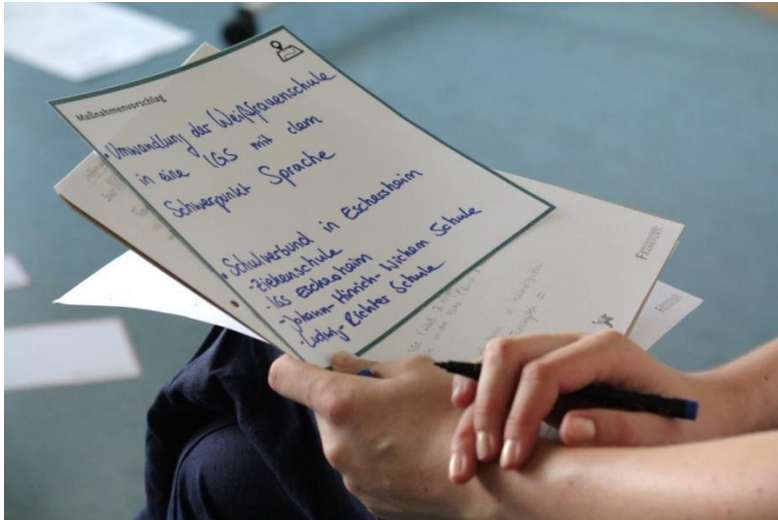 Maßnahmenvorschlag
• Umwandlung der Weißfrauenschule
in eine IGS mit dem
Schwerpunkt Sprache
• Schulverbund in Eschersheim
- Ziehenschule
- IGS Eschersheim
- Johann-Hinrich-Wichern Schule
- Ludwig-Richter Schule